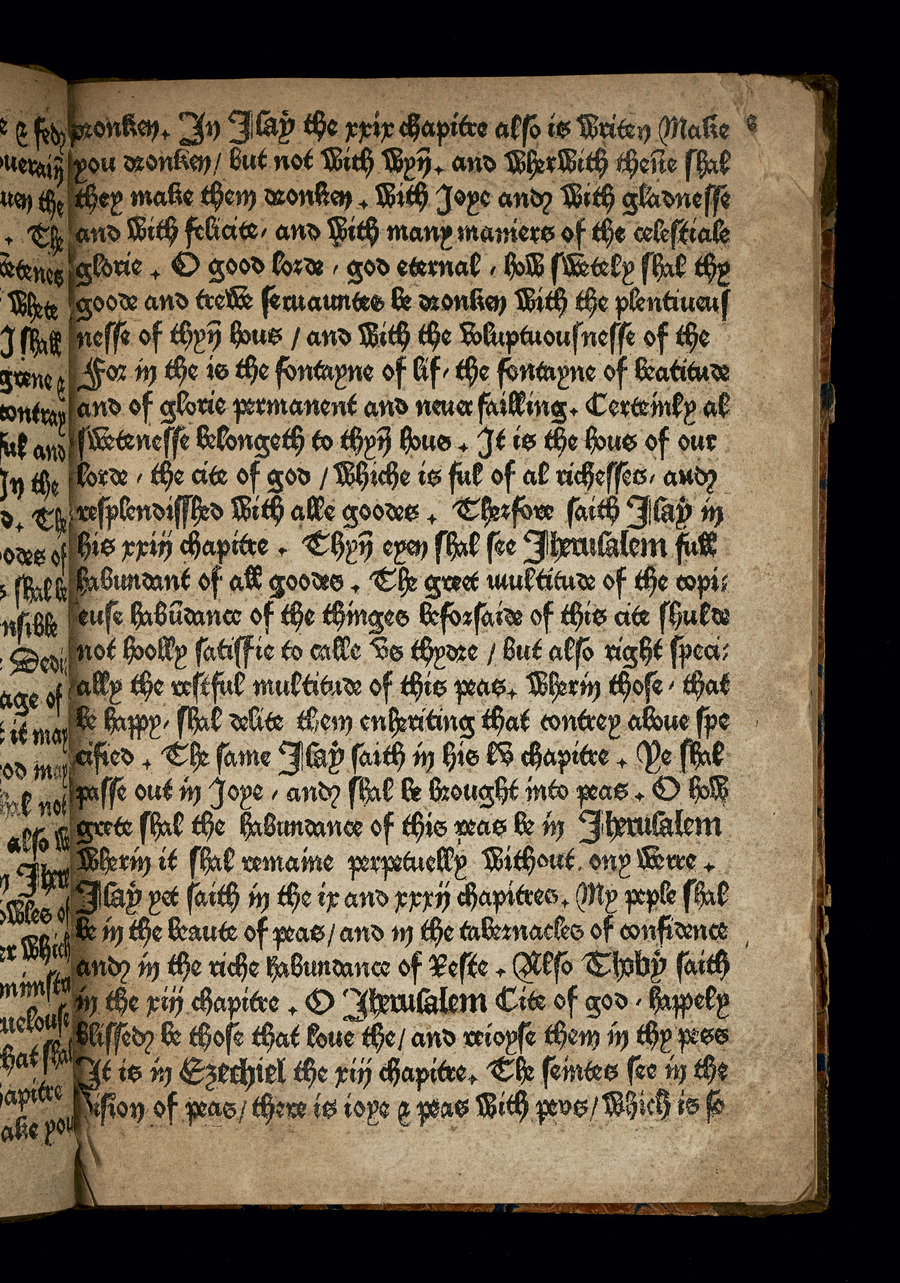 e & fedy
ouerayn
uen the
. The
wetenes
whete
J shall
grene &
contray
ful and
Jn the
d. The
oodes of
s shal be
nsible
e Dedi⸗
age of
t it may
od may
hal not
also w
n Jheru
owles of
er which
minstra
uelouse
that shal
hapitre
ake you
dronken. Jn Jsay the xxix chapitre also is writen Make
you dronken/ but not with wyn̄. and wherwith then̄e shal
they make them dronken. with Joye and with gladnesse
and with felicite, and with many maniers of the celestiale
glorie. O good lorde, god eternal, how swetely shal thy
goode and trewe seruauntes be dronken with the plentiueus
nesse of thyn̄ hous / and with the voluptuousnesse of the
For in the is the fontayne of lif, the fontayne of beatitude
and of glorie permanent and neuer failling. Certeinly al
swetenesse belongeth to thyn̄ hous. Jt is the hous of our
lorde, the cite of god / whiche is ful of al richesses, and
resplendisshed with alle goodes. Therfore saith Jsay in
his xxiij chapitre. Thyn̄ eyen shal see Jherusalem full
habundant of all goodes. The greet multitude of the copi⸗
euse habūdance of the thinges beforsaide of this cite shulde
not hoolly satisfie to calle vs thydre / but also right speci⸗
ally the restful multitude of this peas. wherin those, that
be happy, shal delite them enheriting that contrey aboue spe
cified. The same Jsay saith in his lv chapitre. Ye shal
passe out in Joye, and shal be brought into peas. O how
grete shal the habundance of this peas be in Jherusalem
wherin it shal remaine perpetuelly without ony werre.
Jsay yet saith in the ix and xxxij chapitres. My peple shal
be in the beaute of peas/ and in the tabernacles of confidence
and in the riche habundance of Reste. Also Thoby saith
in the xiij chapitre. O Jherusalem Cite of god, happely
blissed be those that loue the/ and reioyse them in thy peas
Jt is in Ezechiel the xiij chapitre. The seintes see in the
vision of peas/ there is ioye & peas with peos/ which is so